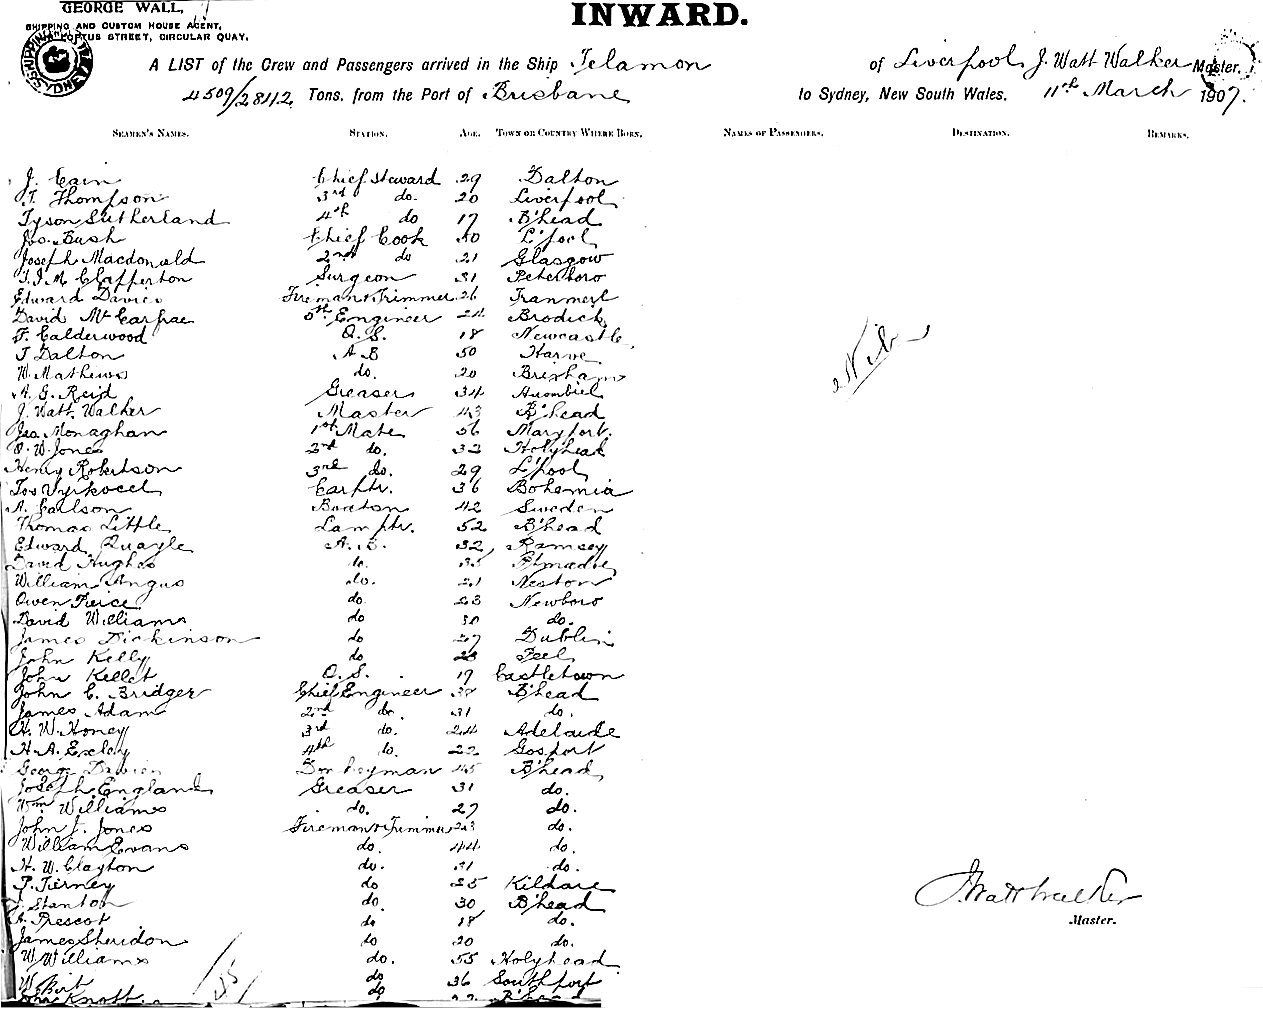 GEORGE WALL,
SHIPPING AND CUSTOM HOUSE AGENT,
LOFTUS STREET, CIRCULAR QUAY,
SYDNEY
INWARD.
A LIST of the Crew and Passengers arrived in the Ship Telamon of Liverpool, J. Watt Walker Master,
4509/2842 Tons, from the Port of Brisbane to Sydney, New South Wales. 11th March 1907.
SEAMEN'S NAMES. STATION. AGE. TOWN OR COUNTRY WHERE BORN. NAMES OF PASSENGERS. DESTINATION. REMARKS.
J. Cain Chief Steward 29 Dalton
T. Thompson 3rd do. 20 Liverpool
Tyson Sutherland 4th do 17 B'head
Jos. Bush Chief Cook 50 L'pool
Joseph Macdonald 2nd do 21 Glasgow
Clapperton Surgeon 31 Peterboro
Edward Davies Fireman & Trimmer 26 Tranmere
David McCarfrae 5th Engineer 24 Brodick
F. Calderwood O.S. 18 Newcastle
J Dalton A B 50 Havre
W. Mathews do. 20 Brixham
A. G. Reid Greaser 34
J. Watt Walker Master 43 B'head
Jas. Monaghan 1st Mate 56 Maryport.
O. W. Jones 2nd do. 32 Holyhead
Henry Robertson 3rd do. 29 L'pool
Jos Vyskocel Carptr. 36 Bohemia
A. Carlson Boatsn 42 Sweden
Thomas Little Lamptr. 52 B'head
Edward Quayle A.B. 32 Ramsey
David Hughes do. 35 Ptmadoc
William Angus do. 21 Neston
Owen Pierce do. 23 Newboro
David Williams do 30 do.
James Dickinson do 27 Dublin
John Kelly do 23 Peel
John Kellet O.S. 19 Castletown
John C. Bridger Chief Engineer 38 B'head
James Adam 2nd do. 31 do.
H. W. Honey 3rd do. 24 Adelaide
H. A. Exeley 4th do. 22 Gosport
George Davies Donkeyman 45 B'head
Joseph England Greaser 31 do.
Wm Williams do. 27 do.
John J. Jones Fireman & Trimmer 23 do.
William Evans do. 44 do.
H. W. Clayton do. 31 do.
P. Tierney do 25 Kildare
J. Stanton do. 30 B'head
A. Prescot do 18 do.
James Sheridon do 20 do.
W. Williams do. 55 Holyhead
W. Birt do 36 Southport
Knott. do 22 B'head
Nil
J. Watt Walker
Master.